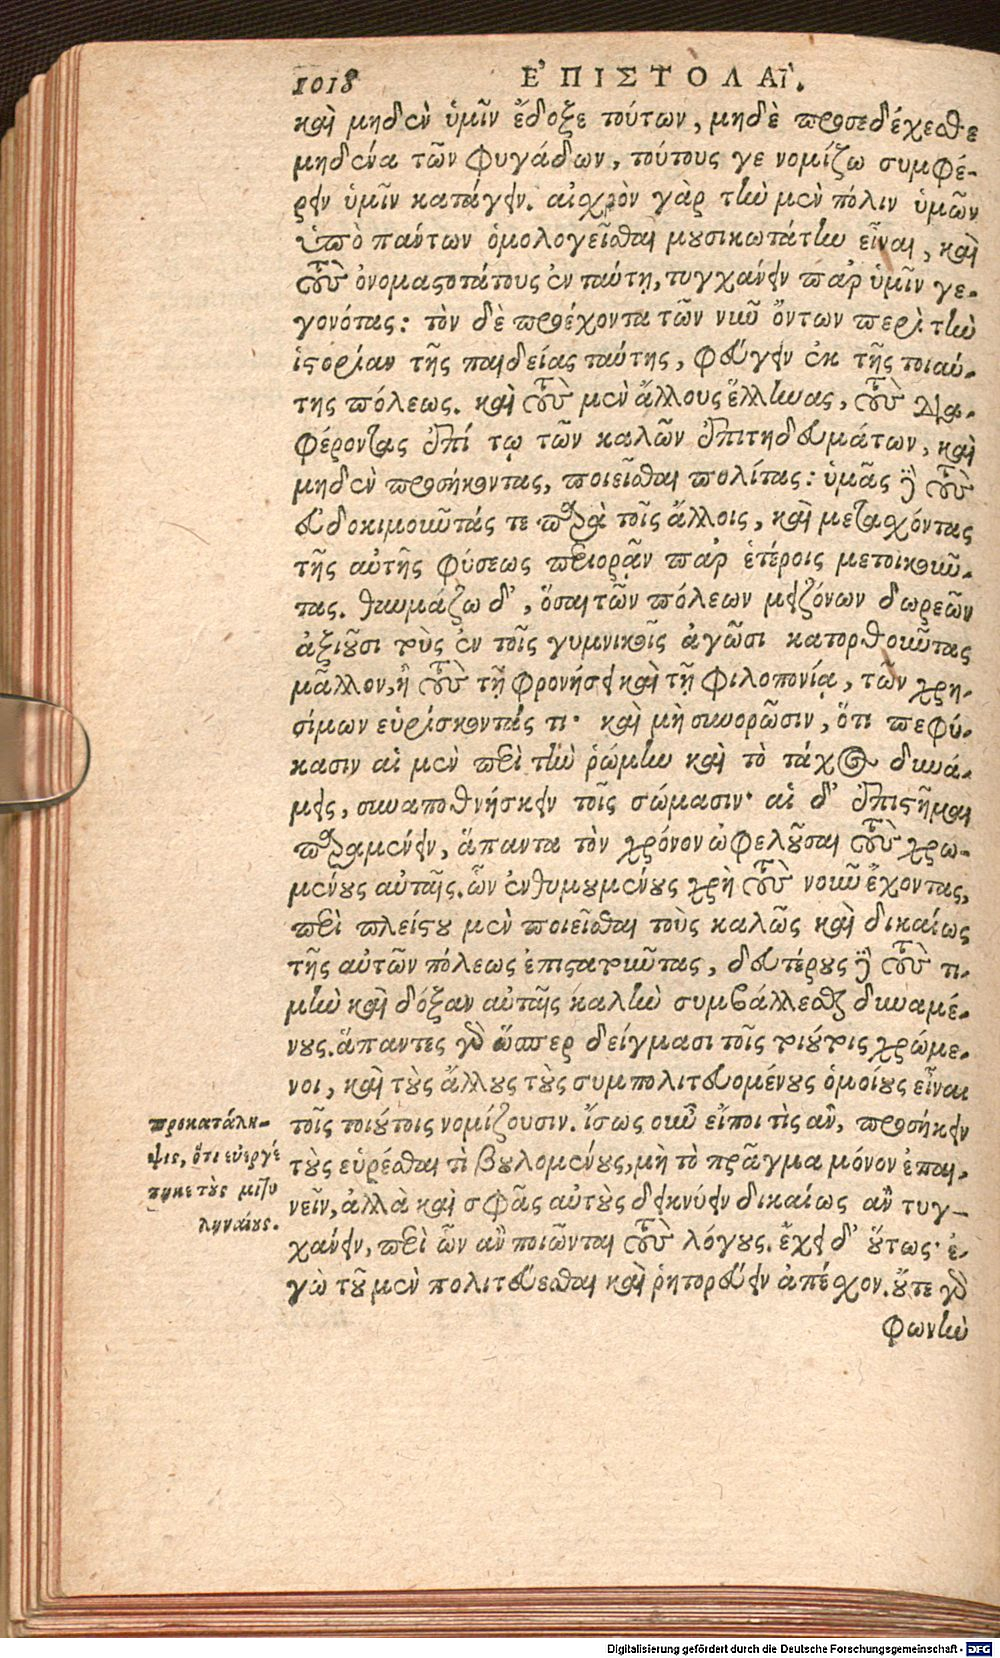 1018 ΕΠΙΣΤΟΛΑΙ.
καὶ μηδὲν ὑμῖν ἔδοξε τούτων, μηδὲ προσεδέχεσθε
μηδένα τῶν φυγάδων, τούτους γε νομίζω συμφέ-
ρειν ὑμῖν κατάγειν. αἰχρὸν γὰρ τὴν μὲν πόλιν ὑμῶν
ὑπὸ πάντων ὁμολογεῖσθαι μουσικωτάτην εἶναι, καὶ
τοὺς ὀνομαστοτάτους ἐν ταύτῃ, τυγχάνειν παρ' ὑμῖν γε-
γονότας: τὸν δὲ προέχοντα τῶν νῦν ὄντων περὶ τὴν
ἱστορίαν τῆς παιδείας ταύτης, φεύγειν ἐκ τῆς τοιαύ-
της πόλεως. καὶ τοὺς μὲν ἄλλους ἕλληνας, τοὺς δια-
φέροντας ἐπί τῳ τῶν καλῶν ἐπιτηδευμάτων, καὶ
μηδὲν προσήκοντας, ποιεῖσθαι πολίτας: ὑμᾶς δὲ τοὺς
εὐδοκιμοῦντάς τε παρὰ τοῖς ἄλλοις, καὶ μετασχόντας
τῆς αὐτῆς φύσεως περιορᾷν παρ' ἑτέροις μετοικοῦν-
τας. θαυμάζω δ', ὅσαι τῶν πόλεων μειζόνων δωρεῶν
ἀξιοῦσι τοὺς ἐν τοῖς γυμνικοῖς ἀγῶσι κατορθοῦντας
μᾶλλον, ἢ τοὺς τῇ φρονήσει καὶ τῇ φιλοπονίᾳ, τῶν χρη-
σίμων εὑρίσκοντάς τι· καὶ μὴ συνορῶσιν, ὅτι πεφύ-
κασιν αἱ μὲν περὶ τὴν ῥώμην καὶ τὸ τάχος δυνά-
μεις, συναποθνήσκειν τοῖς σώμασιν· αἱ δ' ἐπιστῆμαι
παραμένειν, ἅπαντα τὸν χρόνον ὠφελοῦσαι τοὺς χρω-
μένους αὐταῖς. ὧν ἐνθυμουμένους χρὴ τοὺς νοῦν ἔχοντας,
περὶ πλείστου μὲν ποιεῖσθαι τοὺς καλῶς καὶ δικαίως
τῆς αὐτῶν πόλεως ἐπιστατοῦντας, δευτέρους δὲ τοὺς τι-
μὴν καὶ δόξαν αὐταῖς καλὴν συμβάλλεσθαι δυναμέ-
νους. ἅπαντες γὰρ ὥσπερ δείγμασι τοῖς τοιούτοις χρώμε-
νοι, καὶ τοὺς ἄλλους τοὺς συμπολιτευομένους ὁμοίους εἶναι
τοῖς τοιούτοις νομίζουσιν. ἴσως οὖν εἴποι τὶς ἂν, προσήκειν
τοὺς εὑρέσθαι τὶ βουλομένους, μὴ τὸ πρᾶγμα μόνον ἐπαι-
νεῖν, ἀλλὰ καὶ σφᾶς αὐτοὺς δεικνύειν δικαίως ἂν τυγ-
χάνειν, περὶ ὧν ἂν ποιῶνται τοὺς λόγους. ἔχει δ' οὕτως· ἐ-
γὼ τοῦ μὲν πολιτεύεσθαι καὶ ῥητορεύειν ἀπέσχον. οὔτε γὰρ
φωνὴν
προκατάλη-
ψις, ὅτι εὐεργέ
τηκε τοὺς μιτυ
ληναίους.
Digitalisierung gefördert durch die Deutsche Forschungsgemeinschaft - DFG